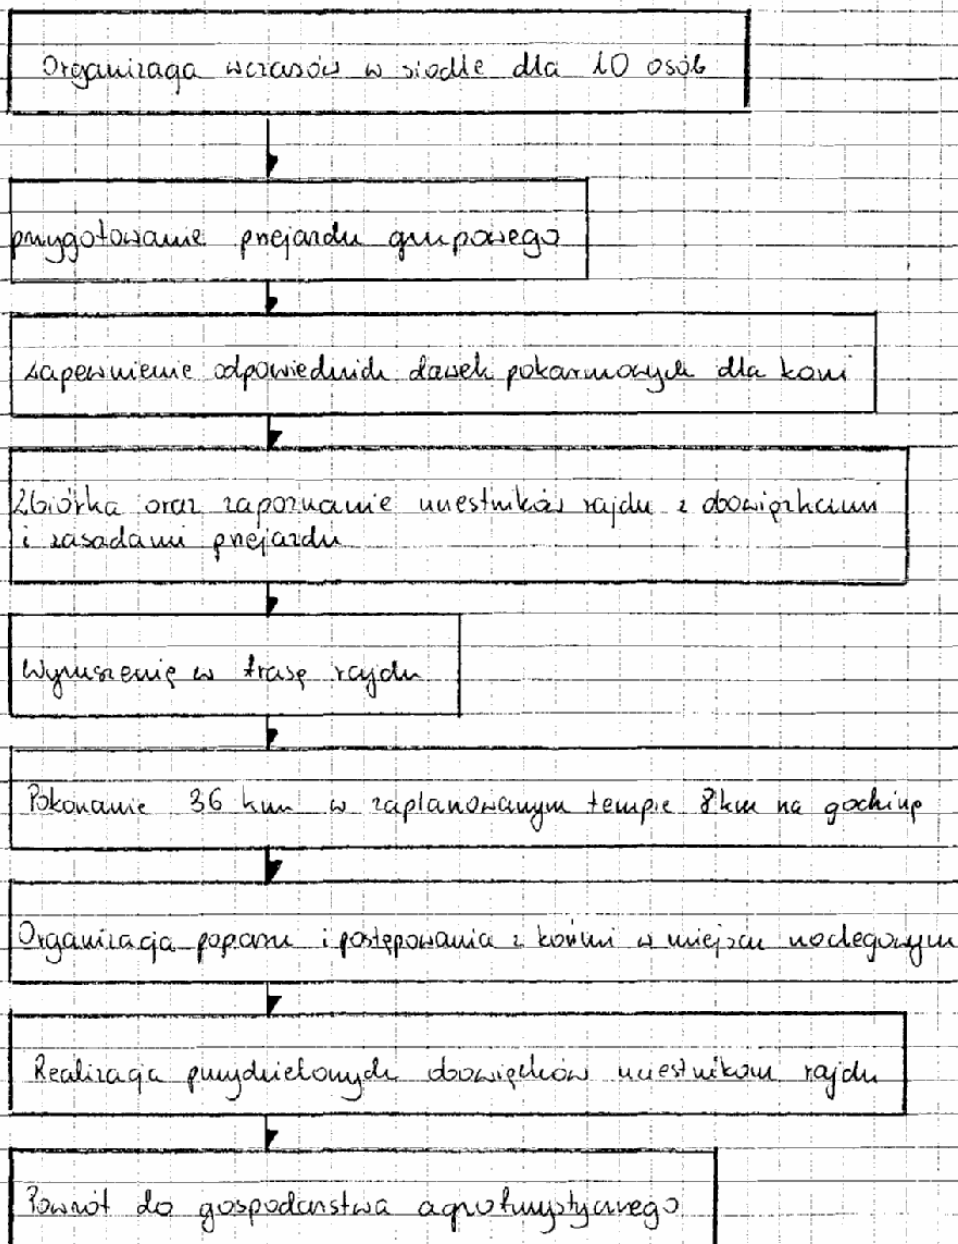 Organizacja wczasów w siodle dla 10 osób
przygotowanie przejazdu grupowego
zapewnienie odpowiednich dawek pokarmowych dla koni
Zbiórka oraz zapoznanie uczestników rajdu z obowiązkami
i zasadami przejazdu
Wyruszenie w trasę rajdu
Pokonanie 36 km w zaplanowanym tempie 8km na godzinę
Organizacja popasu i postępowania z końmi w miejscu noclegowym
Realizacja przydzielonych obowiązków uczestnikom rajdu
Powrót do gospodarstwa agroturystycznego